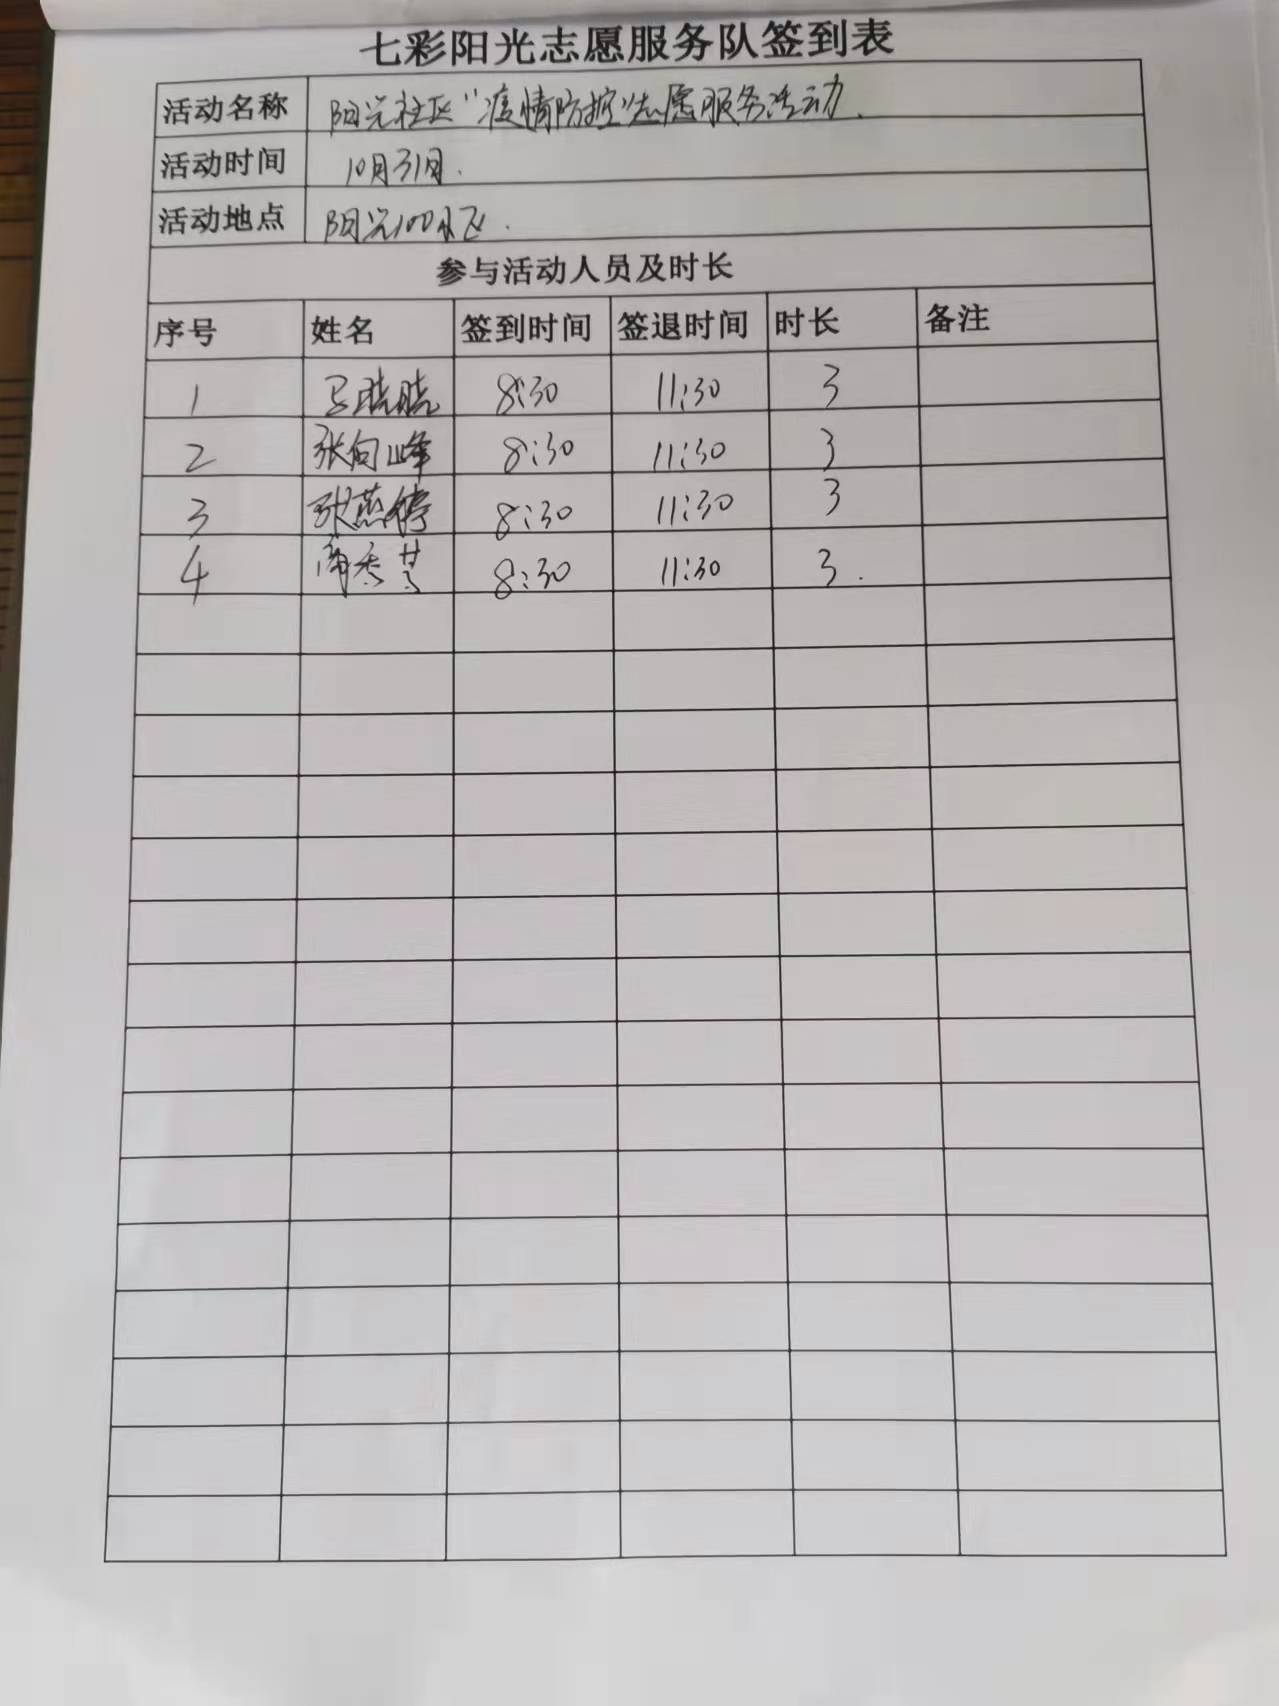 七彩阳光志愿服务队签到表
活动名称 阳光社区“疫情防控”志愿服务活动.
活动时间 10月31日.
活动地点 阳光100小区.
参与活动人员及时长
序号 姓名 签到时间 签退时间 时长 备注
1 马晓晓 8:30 11:30 3
2 张向峰 8:30 11:30 3
3 张燕婷 8:30 11:30 3
4 8:30 11:30 3.